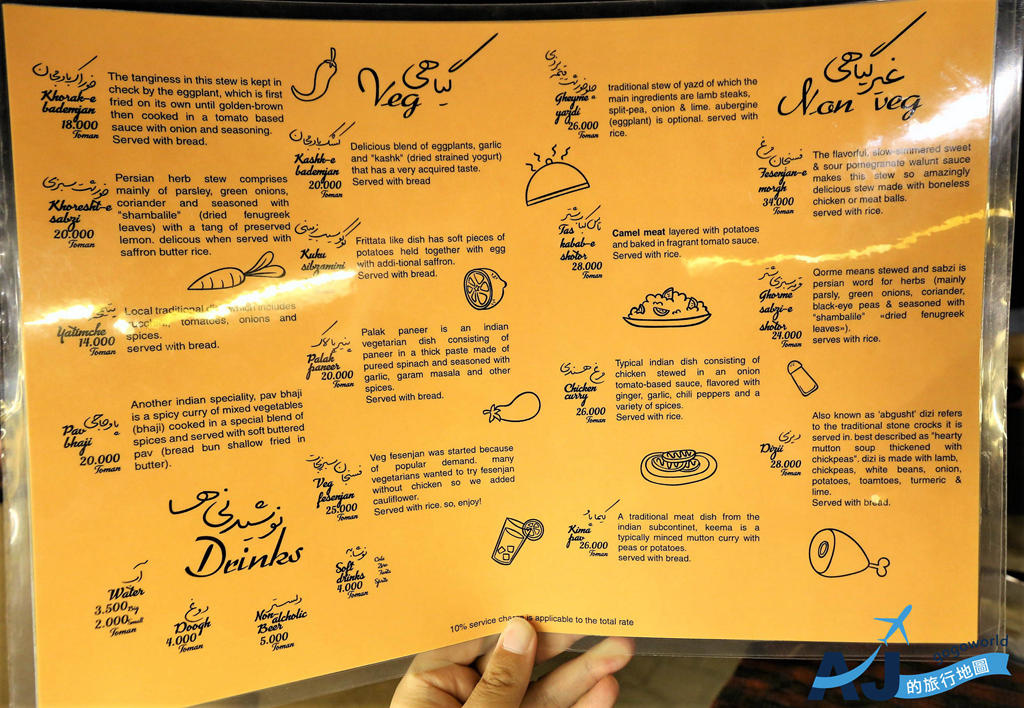 گیاهی
Veg
خوراک بادمجان
Khorak-e
bademjan
18.000
Toman
The tanginess in this stew is kept in
check by the eggplant, which is first
fried on its own until golden-brown
then cooked in a tomato based
sauce with onion and seasoning.
Served with bread.
خورشت سبزی
Khoresht-e
sabzi
20.000
Toman
Persian herb stew comprises
mainly of parsley, green onions,
coriander and seasoned with
"shambalile" (dried fenugreek
leaves) with a tang of preserved
lemon. delicious when served with
saffron butter rice.
Yatimche
14.000
Toman
Local traditional dish which includes
tomatoes, onions and
spices.
served with bread.
پاو باجی
Pav
bhaji
20.000
Toman
Another indian speciality, pav bhaji
is a spicy curry of mixed vegetables
(bhaji) cooked in a special blend of
spices and served with soft buttered
pav (bread bun shallow fried in
butter).
کشک بادمجان
Kashk-e
bademjan
20.000
Toman
Delicious blend of eggplants, garlic
and "kashk" (dried strained yogurt)
that has a very acquired taste.
Served with bread
کوکو سیب زمینی
Kuku
sibzamini
Frittata like dish has soft pieces of
potatoes held together with egg
with addi-tional saffron.
Served with bread.
پنیر پالاک
Palak
paneer
20.000
Toman
Palak paneer is an indian
vegetarian dish consisting of
paneer in a thick paste made of
pureed spinach and seasoned with
garlic, garam masala and other
spices.
Served with bread.
فسنجان سبزیجات
Veg
fesenjan
25.000
Toman
Veg fesenjan was started because
of popular demand. many
vegetarians wanted to try fesenjan
without chicken so we added
cauliflower.
Served with rice. so, enjoy!
نوشیدنی ها
Drinks
آب
Water
3.500 Big
2.000 Small
Toman
دوغ
Doogh
4.000
Toman
دلستر
Non-alcholic
Beer
5.000
Toman
نوشابه
Soft
drinks
4.000
Toman
غیر گیاهی
Non veg
Gheyme-e
yazdi
26.000
Toman
traditional stew of yazd of which the
main ingredients are lamb steaks,
split-pea, onion & lime. aubergine
(eggplant) is optional. served with
rice.
تاس کباب شتر
Tas
kabab-e
shotor
28.000
Toman
Camel meat layered with potatoes
and baked in fragrant tomato sauce.
Served with rice.
مرغ هندی
Chicken
curry
26.000
Toman
Typical indian dish consisting of
chicken stewed in an onion
tomato-based sauce, flavored with
ginger, garlic, chili peppers and a
variety of spices.
Served with rice.
کیما پاو
Kima
pav
26.000
Toman
A traditional meat dish from the
indian subcontinet, keema is a
typically minced mutton curry with
peas or potatoes.
served with bread.
فسنجان مرغ
Fesenjan-e
morgh
34.000
Toman
The flavorful, slow-simmered sweet
& sour pomegranate walunt sauce
makes this stew so amazingly
delicious stew made with boneless
chicken or meat balls.
served with rice.
قورمه سبزی شتر
Ghorme
sabzi-e
shotor
24.000
Toman
Qorme means stewed and sabzi is
persian word for herbs (mainly
parsly, green onions, coriander,
black-eye peas & seasoned with
"shambalile" «dried fenugreek
leaves»).
serves with rice.
دیزی
Dizii
28.000
Toman
Also known as 'abgusht' dizi refers
to the traditional stone crocks it is
served in. best described as "hearty
mutton soup thickened with
chickpeas". dizi is made with lamb,
chickpeas, white beans, onion,
potatoes, toamtoes, turmeric &
lime.
Served with bread.
10% service charge is applicable to the total rate
AJ
gogoworld
的旅行地圖